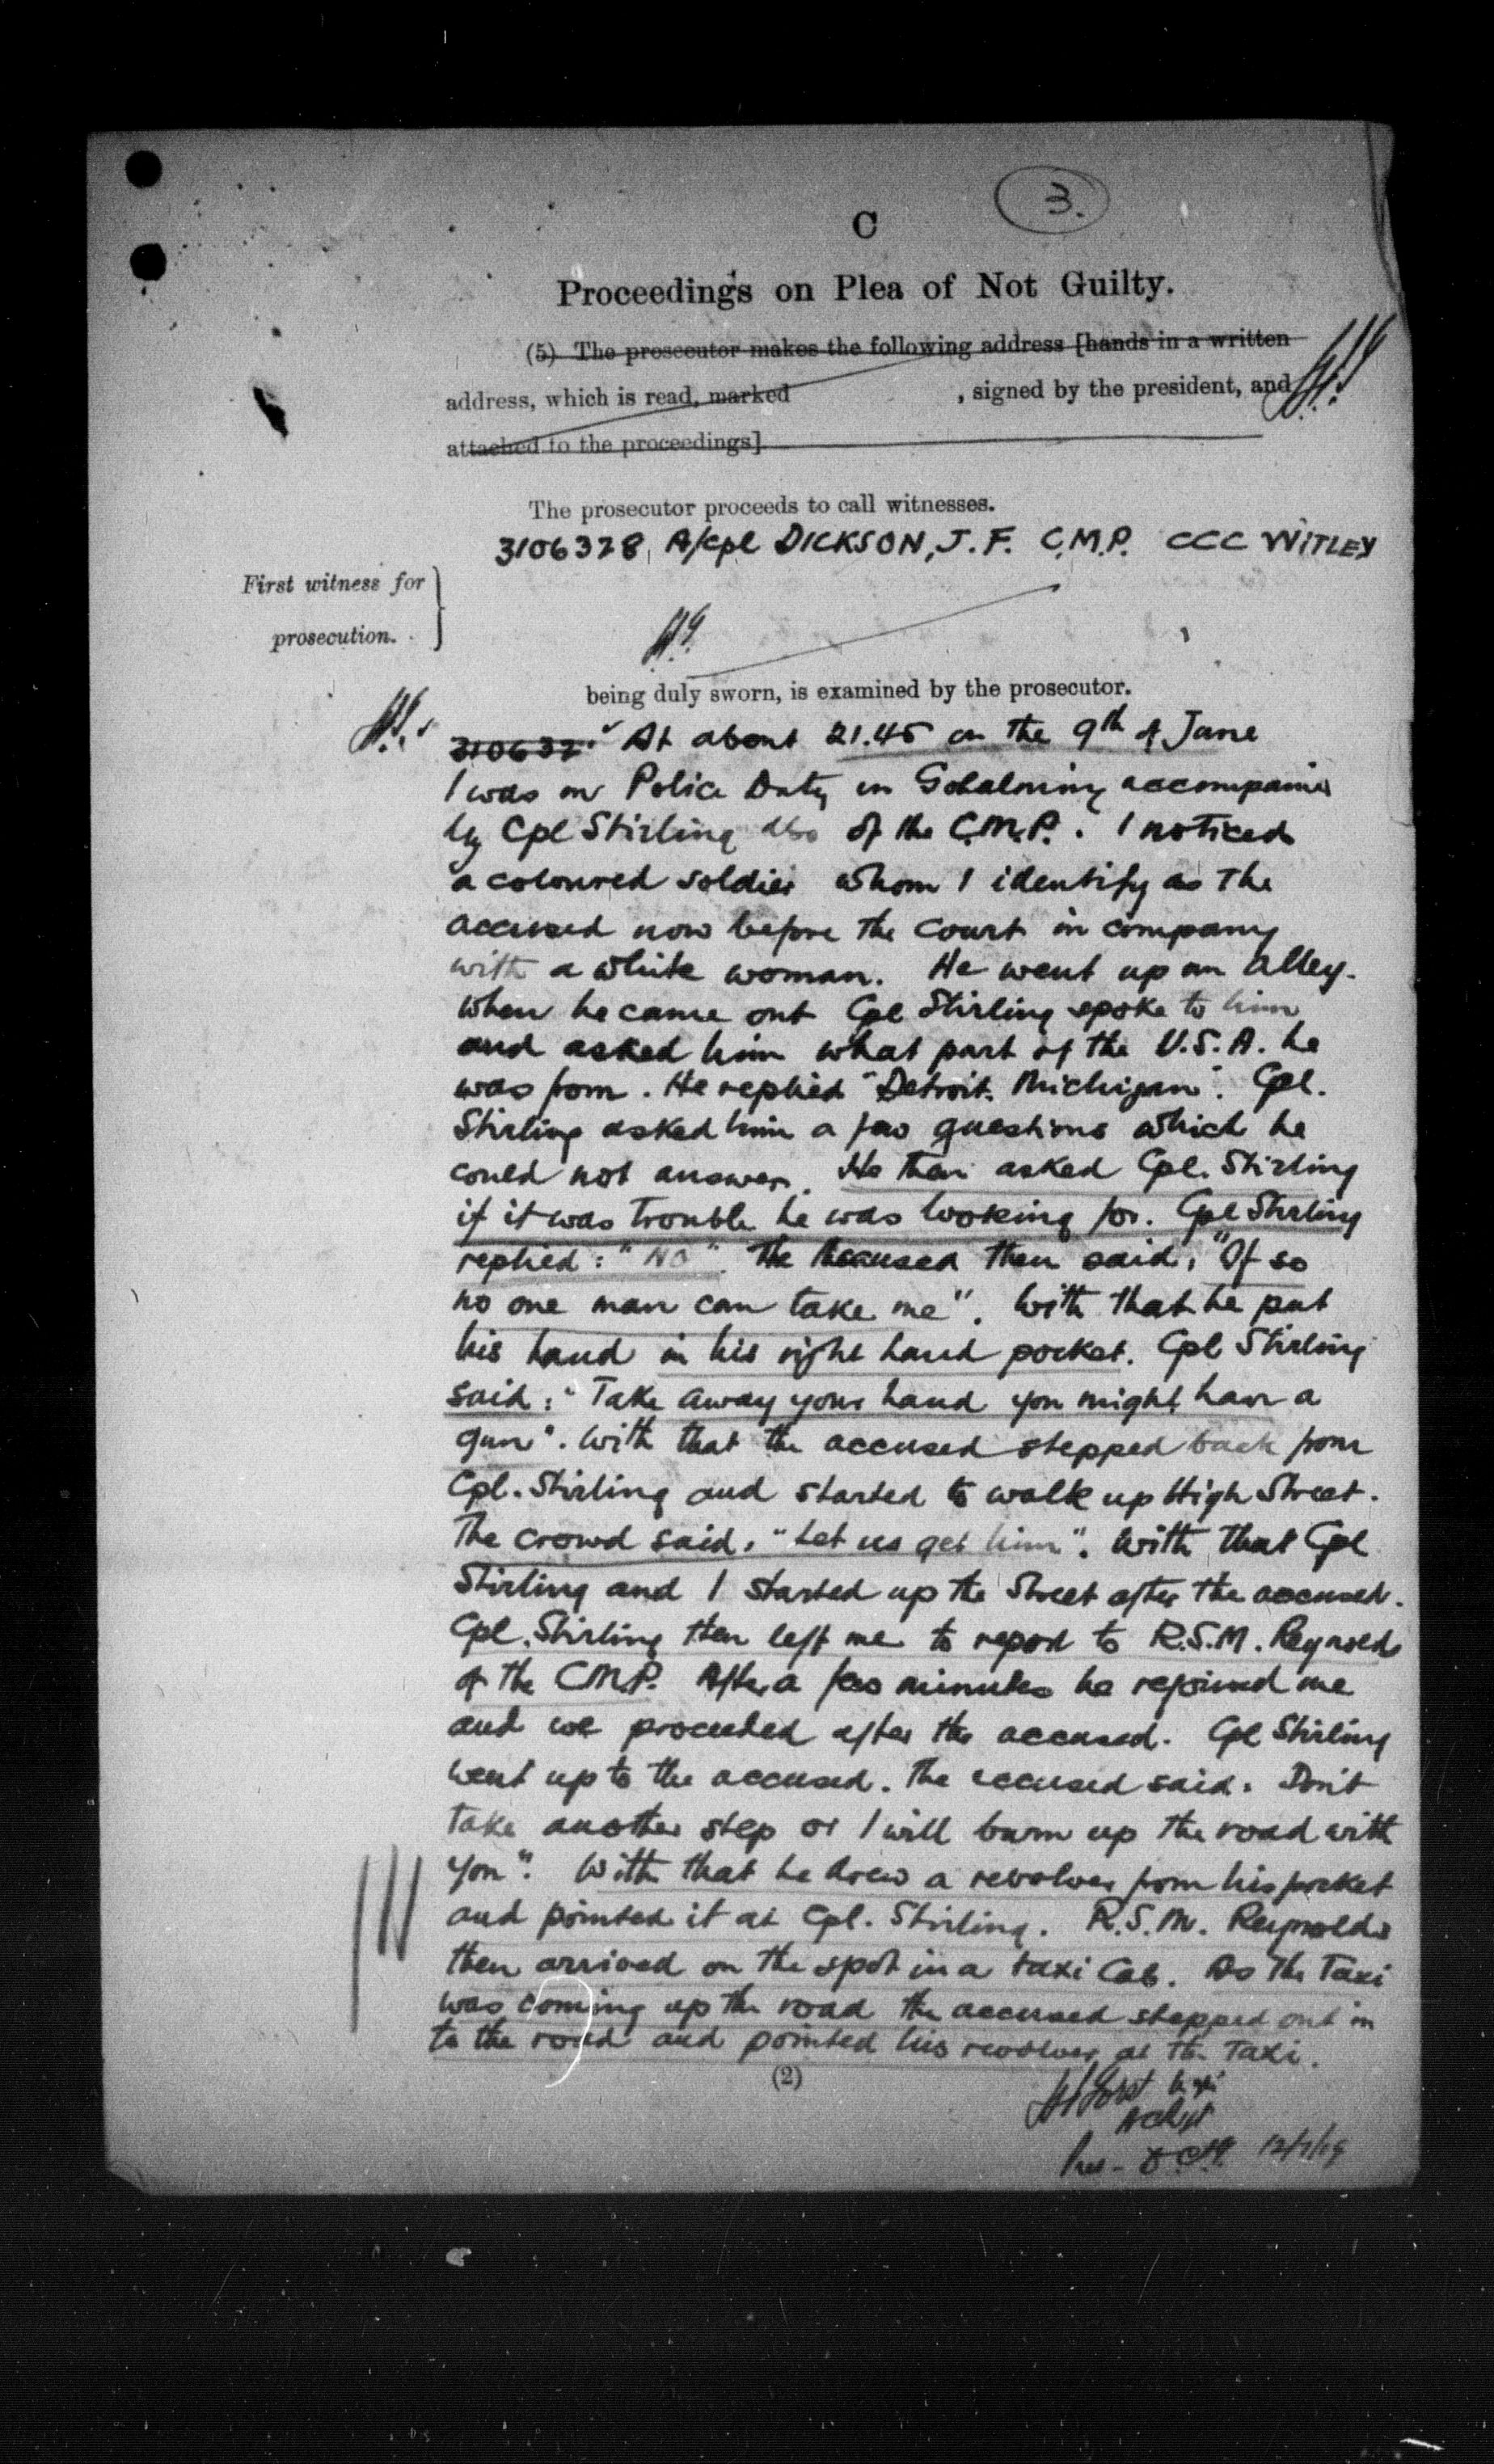 3.
C
Proceedings on Plea of Not Guilty.
(5) The prosecutor makes the following address [hands in a written
address, which is read, marked , signed by the president, and
attached to the proceedings].
The prosecutor proceeds to call witnesses.
3106328, A/Cpl DICKSON, J. F. C.M.P. CCC WITLEY
First witness for
prosecution.
being duly sworn, is examined by the prosecutor.
310632. At about 21.45 on the 9th of June
I was on Police Duty in Godalming accompanied
by Cpl Stirling also of the C.M.P. I noticed
a coloured soldier whom I identify as the
accused now before the Court in company
with a white woman. He went up an alley.
When he came out Cpl Stirling spoke to him
and asked him what part of the U.S.A. he
was from. He replied "Detroit. Michigan". Cpl.
Stirling asked him a few questions which he
could not answer. He then asked Cpl. Stirling
if it was trouble he was looking for. Cpl Stirling
replied: "No". The accused then said: "If so
no one man can take me". With that he put
his hand in his right hand pocket. Cpl Stirling
said: "Take away your hand you might have a
gun". With that the accused stepped back from
Cpl. Stirling and started to walk up High Street.
The crowd said: "Let us get him". With that Cpl
Stirling and I started up the Street after the accused.
Cpl. Stirling then left me to report to R.S.M. Reynolds
of the C.M.P. After a few minutes he rejoined me
and we proceeded after the accused. Cpl Stirling
went up to the accused. The accused said: Don't
take another step or I will burn up the road with
you". With that he drew a revolver from his pocket
and pointed it at Cpl. Stirling. R.S.M. Reynolds
then arrived on the spot in a taxi Cab. As the Taxi
was coming up the road the accused stepped out in
to the road and pointed his revolver at the Taxi.
(2)
12/7/19